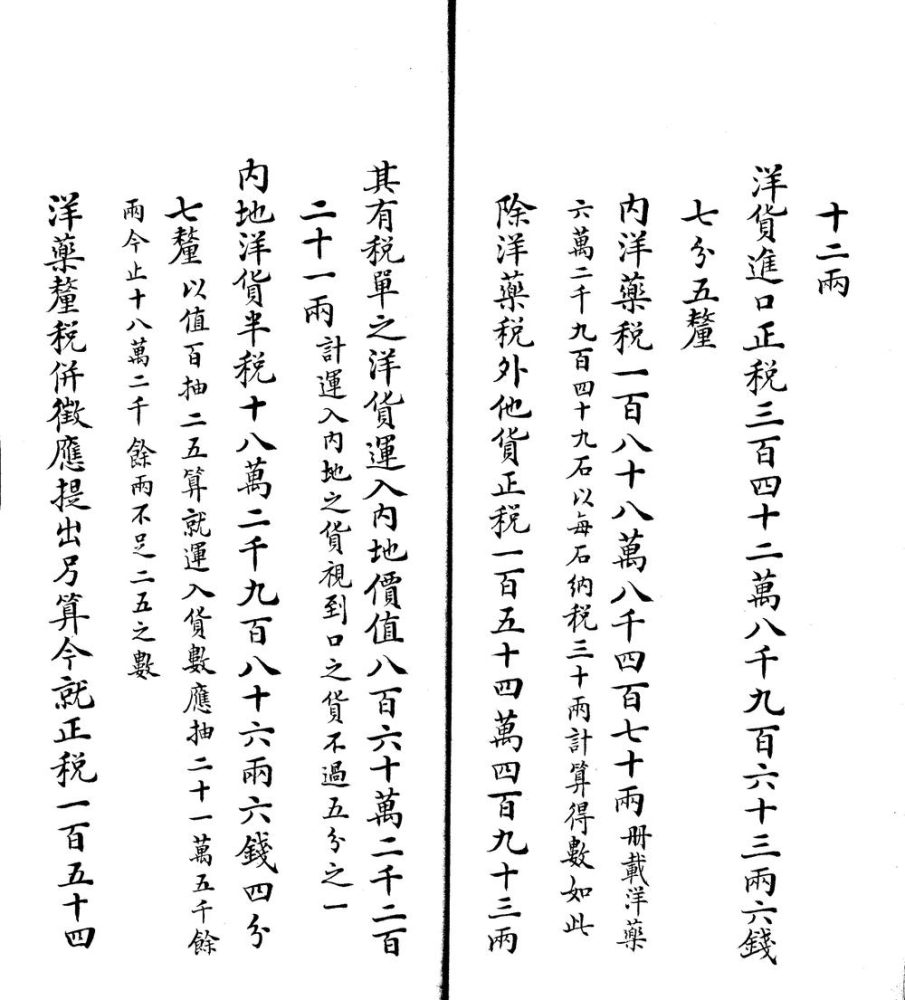 十二兩
洋貨進口正税三百四十二萬八千九百六十三兩六錢
七分五釐
内洋藥税一百八十八萬八千四百七十兩册載洋藥
六萬二千九百四十九石以每石納税三十兩計算得數如此
除洋藥税外他貨正税一百五十四萬四百九十三兩
其有税單之洋貨運入内地價值八百六十萬二千二百
二十一兩計運入内地之貨視到口之貨不過五分之一
内地洋貨半税十八萬二千九百八十六兩六錢四分
七釐以值百抽二五算就運入貨數應抽二十一萬五千餘
兩今止十八萬二千餘兩不足二五之數
洋藥釐税併徵應提出另算今就正税一百五十四